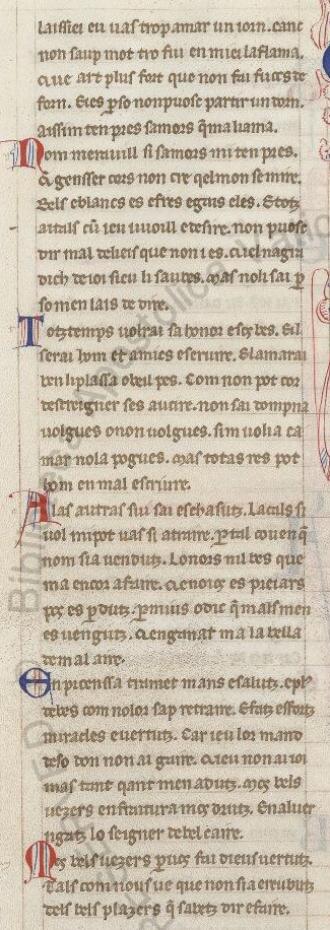 laissiei eu uas trop amar un iorn. canc
non saup mot tro fui en miei la flama.
que art plus fort que non fai fuecs de
forn. Ges ꝑso non puose partir un torn.
aissim ten pres samors q̄ma liama.
Nom merauill si samors mi ten pres.
Q gensser cors non cre qel mon se mire.
Bels e blancs es e fres e gais e les. E totz
aitals cū ieu uuoill e desire. non puosc
dir mal de lieis que non i es. qiel nagra
dich de ioi sieu li saubes. Mas noli sai ꝑ
so men lais de dire.
Totz temps uolrai sa honor e sos bes. Eil
serai hom et amics e seruire. Elamarai
ben li plassa o beil pes. Com non pot cor
destreigner ses aucire. non sai dompna
uolgues o non uolgues. sim uolia ca
mar nola pogues. Mas totas res pot
hom en mal escriure.
Alas autras sui sai eschasutz. Laculs si
uol mi pot uas si atraire. ꝑ tal couen q̄
nom sia uendutz. Lonors nil bes que
ma encor a faire. Qenoios es preiars
pos es ꝑdutz. ꝑ mi uos o dic q̄ mals men
es uengutz. Qenganat ma la bella
de mal aire.
En proenssa tramet mans e salutz. e pl9
de bes com nolor sap retraire. E fatz esfortz
miracles e uertutz. Car ieu lor man
de so don non ai gaire. Qieu non ai ioi
mas tant qant men adutz. Mos bels
uezers en faitura mos drutz. En aluer
ngatz lo seigner de belcaire.
Mos bels uezers ꝑ uos fai dieus uertutz.
Tals com no us ue que non sia ereubutz
dels bels plazers q̄ sabetz dir e faire.